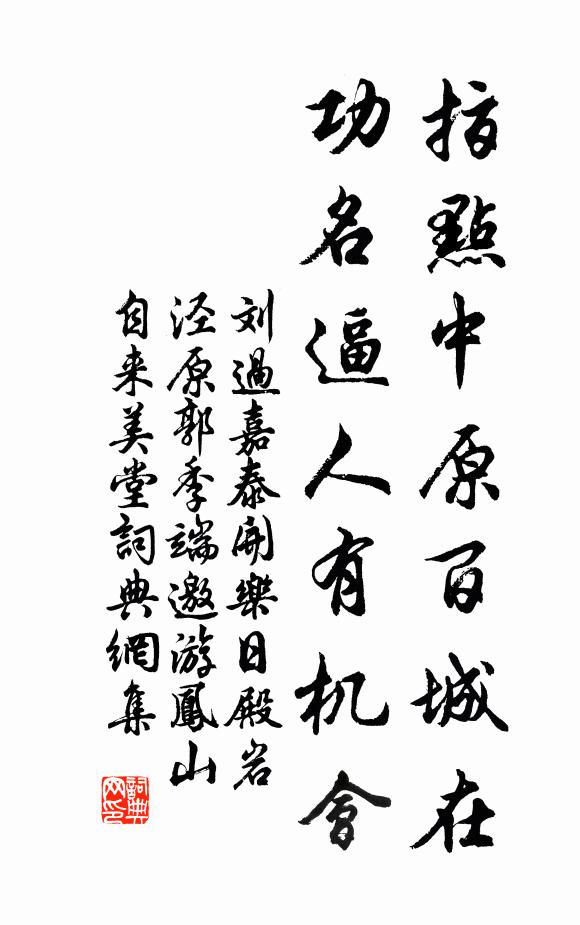 指點中原百城在
功名逼人有机會
刘過嘉泰開樂日殿岩
泾原郭季端邀游鳳山
自来美堂詞典網集
詞典网印